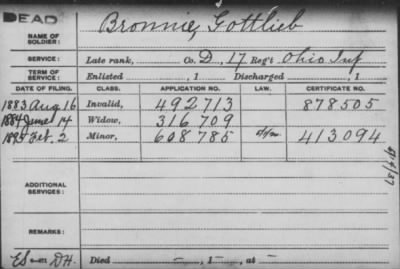 DEAD
NAME OF SOLDIER: Bronnie, Gottlieb
SERVICE: Late rank, Co. D, 17 Reg't Ohio Inf
TERM OF SERVICE: Enlisted , 1 Discharged , 1
DATE OF FILING. CLASS. APPLICATION NO. LAW. CERTIFICATE NO.
1883 Aug 16 Invalid, 492713 878505
1884 June 14 Widow, 316709
1895 Feb. 2 Minor, 608785 413094
ADDITIONAL SERVICES:
REMARKS:
Died , 1 , at